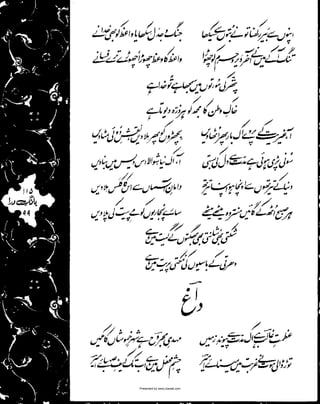 اپنوں سے بیر رکھنا تو نے بتوں سے سیکھا جنگ و جدل سکھایا واعظ کو بھی خدا نے
تنگ آ کے میں نے آخر دیر و حرم کو چھوڑا واعظ کا وعظ چھوڑا، چھوڑے ترے فسانے
پتھر کی مورتوں میں سمجھا ہے تو خدا ہے
خاکِ وطن کا مجھ کو ہر ذرہ دیوتا ہے
آ، غیریت کے پردے اک بار پھر اٹھا دیں بچھڑوں کو پھر ملا دیں نقشِ دوئی مٹا دیں
سونی پڑی ہوئی ہے مدت سے دل کی بستی آ، اک نیا شوالا اس دیس میں بنا دیں
دنیا کے تیرتھوں سے اونچا ہو اپنا تیرتھ دامانِ آسماں سے اس کا کلس ملا دیں
ہر صبح اٹھ کے گائیں منتر وہ میٹھے میٹھے سارے پجاریوں کو مے پیت کی پلا دیں
شکتی بھی شانتی بھی بھگتوں کے گیت میں ہے
دھرتی کے باسیوں کی مکتی پریت میں ہے
داغ
عظمتِ غالب ہے اک مدت سے پیوندِ زمیں مہدیِ مجروح ہے شہرِ خموشاں کا مکیں
توڑ ڈالی موت نے غربت میں مینائے امیر چشمِ محفل میں ہے اب تک کیفِ صہبائے امیر
۱۱۵
بانگِ درا
۹۹